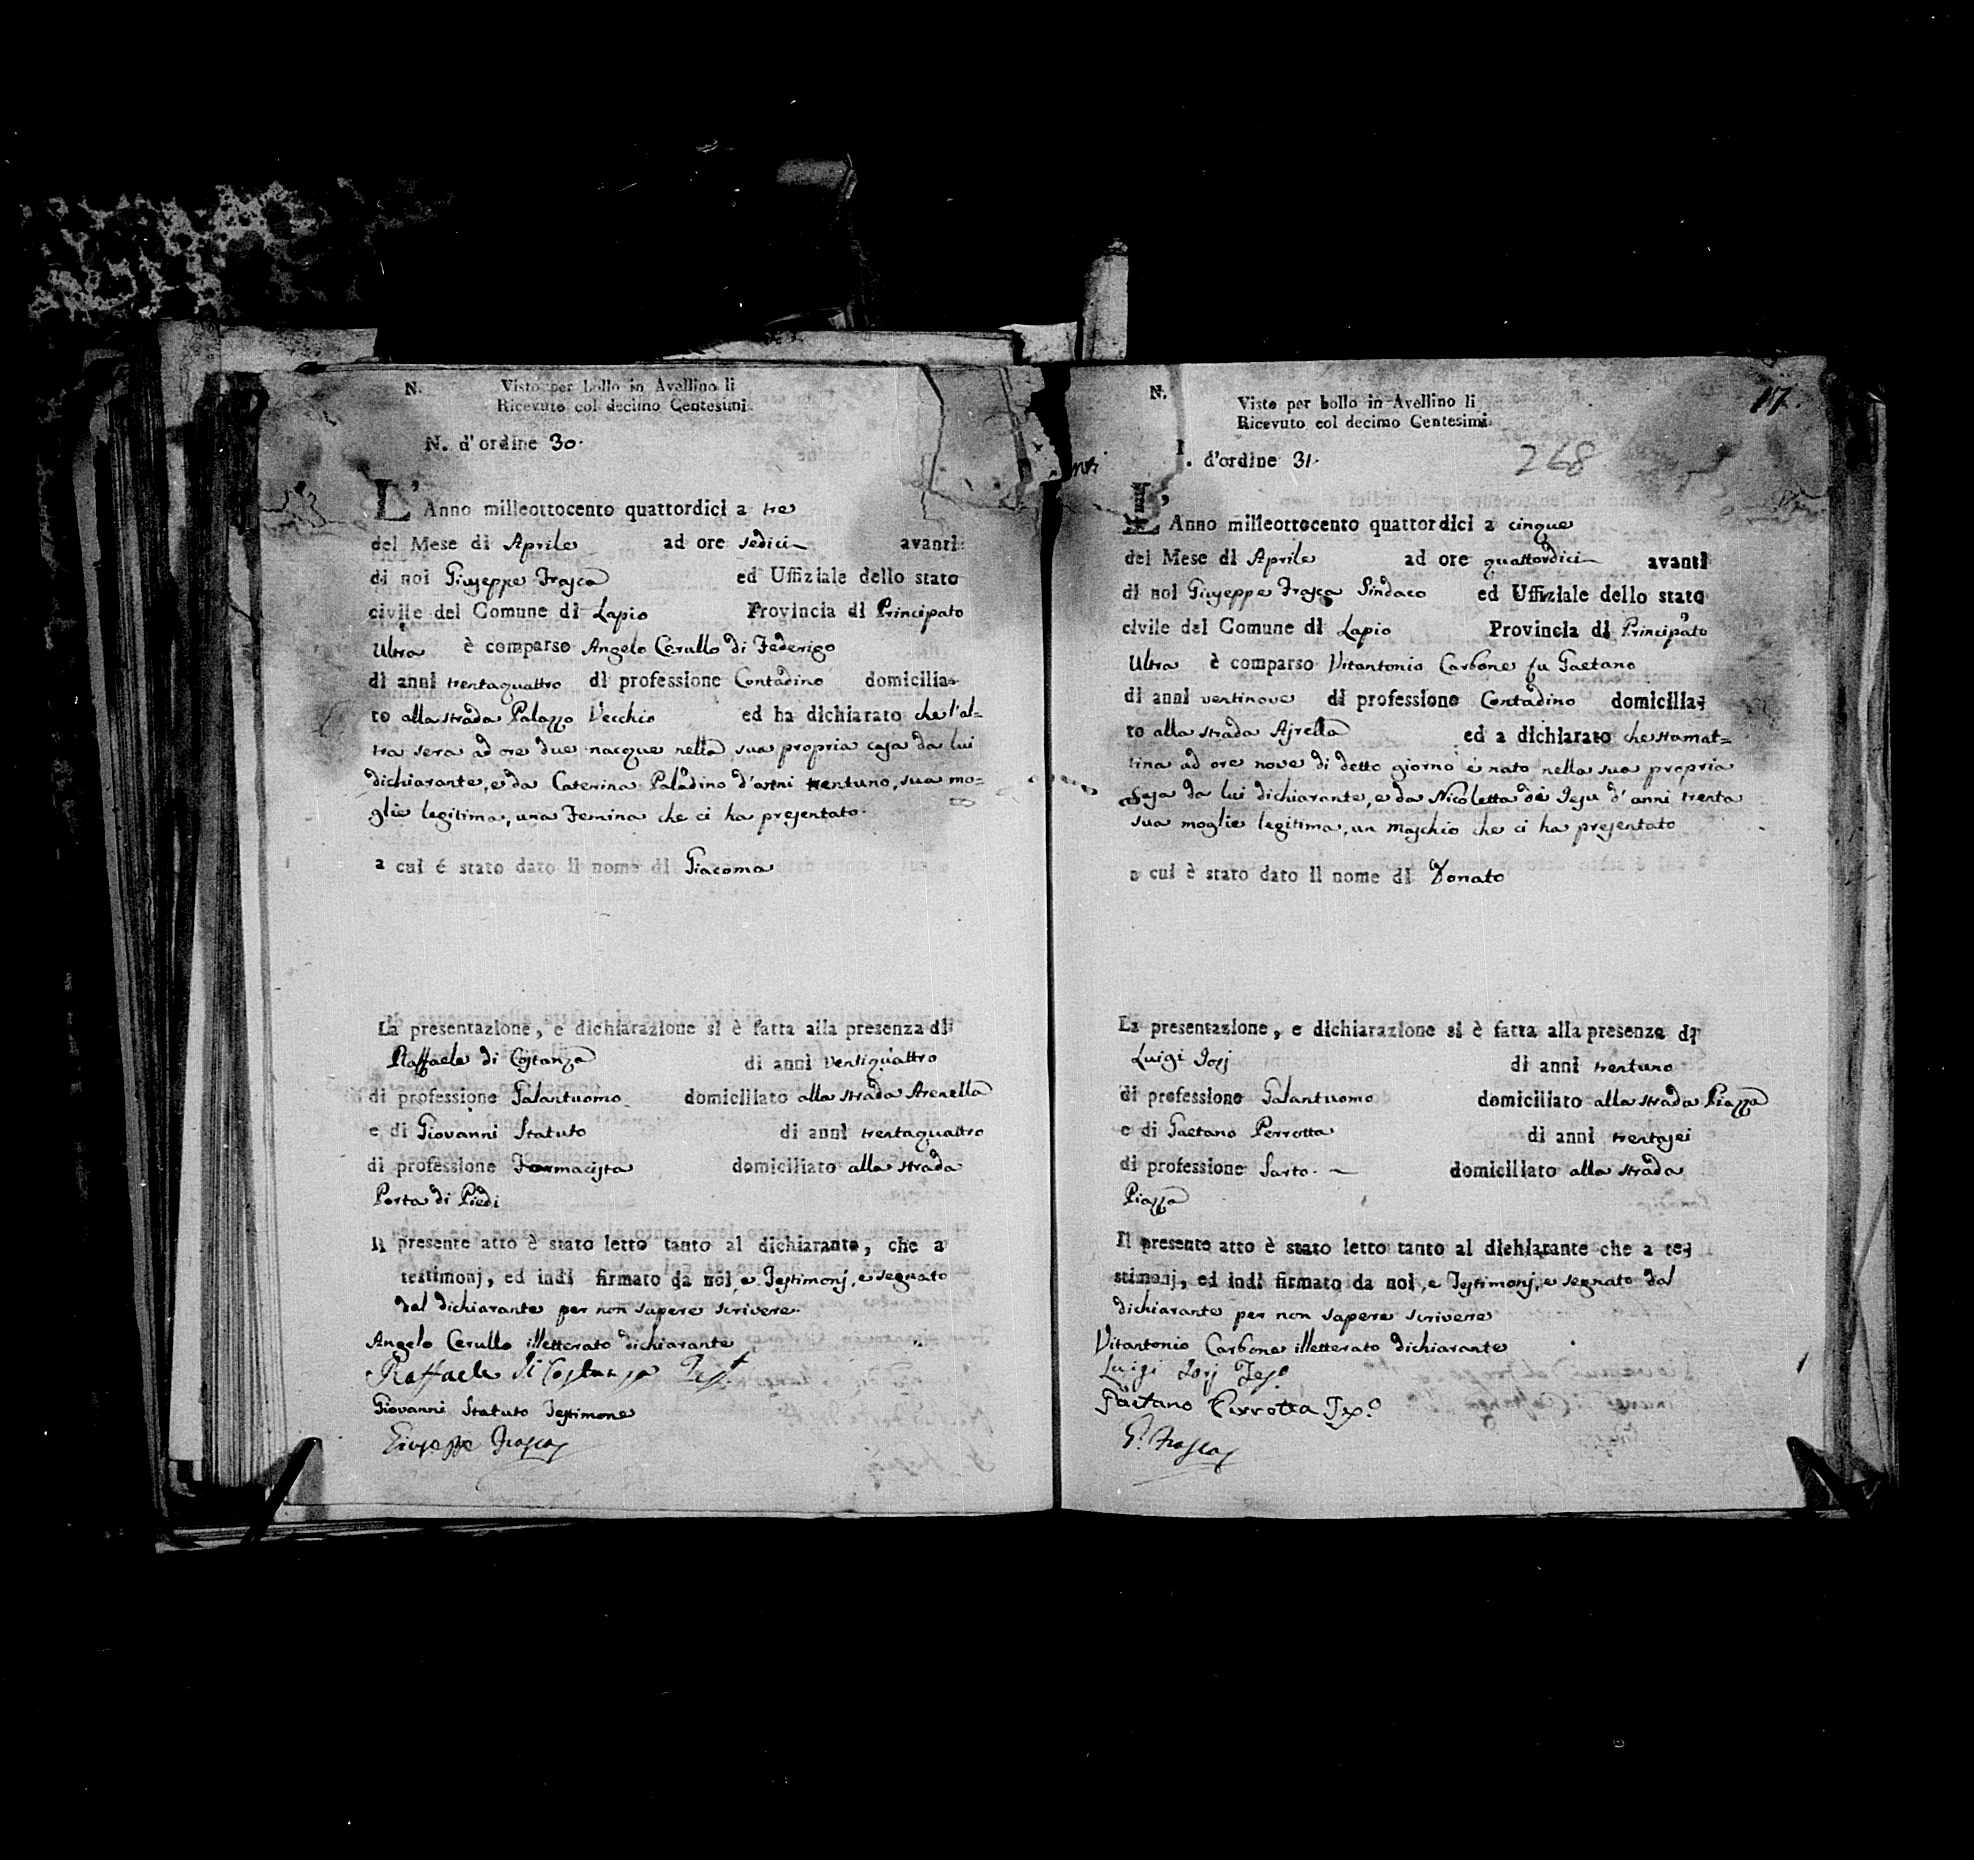 N.
Visto per bollo in Avellino li
Ricevuto col decimo Centesimi
N. d'ordine 30.
L'Anno milleottocento quattordici a tre
del Mese di Aprile ad ore sedici avanti
di noi Giuseppe Frasca ed Uffiziale dello stato
civile del Comune di Lapio Provincia di Principato
Ultra è comparso Angelo Cerullo di Federigo
di anni trentaquattro di professione Contadino domicilia-
to alla strada Palazzo Vecchio ed ha dichiarato che l'al-
tra sera ad ore due nacque nella sua propria casa da lui
dichiarante, e da Caterina Paladino d'anni trentuno, sua mo-
glie legitima, una Femina che ci ha presentato.
a cui é stato dato il nome di Giacoma
La presentazione, e dichiarazione si è fatta alla presenza di
Raffaele di Costanza di anni ventiquattro
di professione Galantuomo domiciliato alla strada Arenella
e di Giovanni Statuto di anni trentaquattro
di professione Farmacista domiciliato alla strada
Porta di Piedi
Il presente atto è stato letto tanto al dichiarante, che a
testimonj, ed indi firmato da noi, e Testimonj, e segnato
dal dichiarante per non sapere scrivere.
Angelo Cerullo illetterato dichiarante
Raffaele di Costanza Test.
Giovanni Statuto Testimone
Giuseppe Frasca
N.
17.
Visto per bollo in Avellino li
Ricevuto col decimo Centesimi
. d'ordine 31.
268
L'Anno milleottocento quattordici a cinque
del Mese di Aprile ad ore quattordici avanti
di noi Giuseppe Frasca Sindaco ed Uffiziale dello stato
civile del Comune di Lapio Provincia di Principato
Ultra è comparso Vitantonio Carbone fu Gaetano
di anni ventinove di professione Contadino domicilia-
to alla strada Ajrella ed a dichiarato che stamat-
tina ad ore nove di detto giorno è nato nella sua propria
Casa da lui dichiarante, e da Nicoletta de Jesu d'anni trenta
sua moglie legitima, un maschio che ci ha presentato
a cui è stato dato il nome di Donato
La presentazione, e dichiarazione si è fatta alla presenza di
Luigi Jorj di anni trentuno
di professione Galantuomo domiciliato alla strada Piazza
e di Gaetano Perrotta di anni trentasei
di professione Sarto. domiciliato alla strada
Piazza
Il presente atto è stato letto tanto al dichiarante che a te-
stimonj, ed indi firmato da noi, e Testimonj, e segnato dal
dichiarante per non sapere scrivere
Vitantonio Carbone illetterato dichiarante
Luigi Jorj Teso
Gaetano Perrotta Teso.
G. Frasca